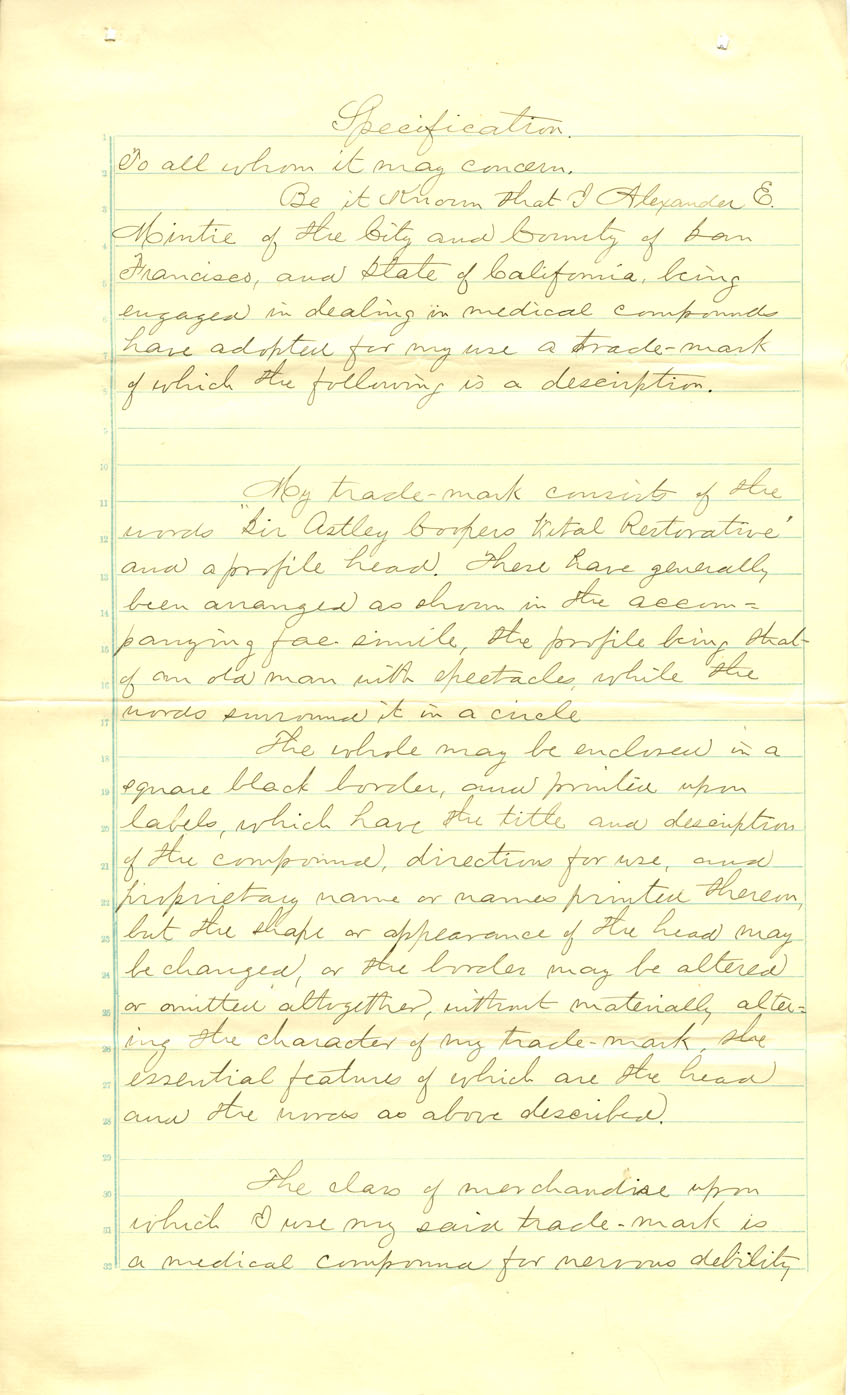 Specification.
To all whom it may concern.
Be it Known that I Alexander E.
Mintie of the City and County of San
Francisco, and State of California, being
engaged in dealing in medical compounds
have adopted for my use a trade-mark
of which the following is a description.
My trade-mark consists of the
words "Sir Astley Coopers Vital Restorative"
and a profile head. These have generally
been arranged as shown in the accom=
panying fac simile, the profile being that
of an old man with spectacles, while the
words surround it in a circle
The whole may be enclosed in a
square black border, and printed upon
labels, which have the title and description
of the compound, directions for use, and
proprietary name or names printed thereon,
but the shape or appearance of the head may
be changed, or the border may be altered
or omitted altogether, without materially alter=
ing the character of my trade-mark, the
essential features of which are the head
and the words as above described.
The class of merchandise upon
which I use my said trade-mark is
a medical compound for nervous debility